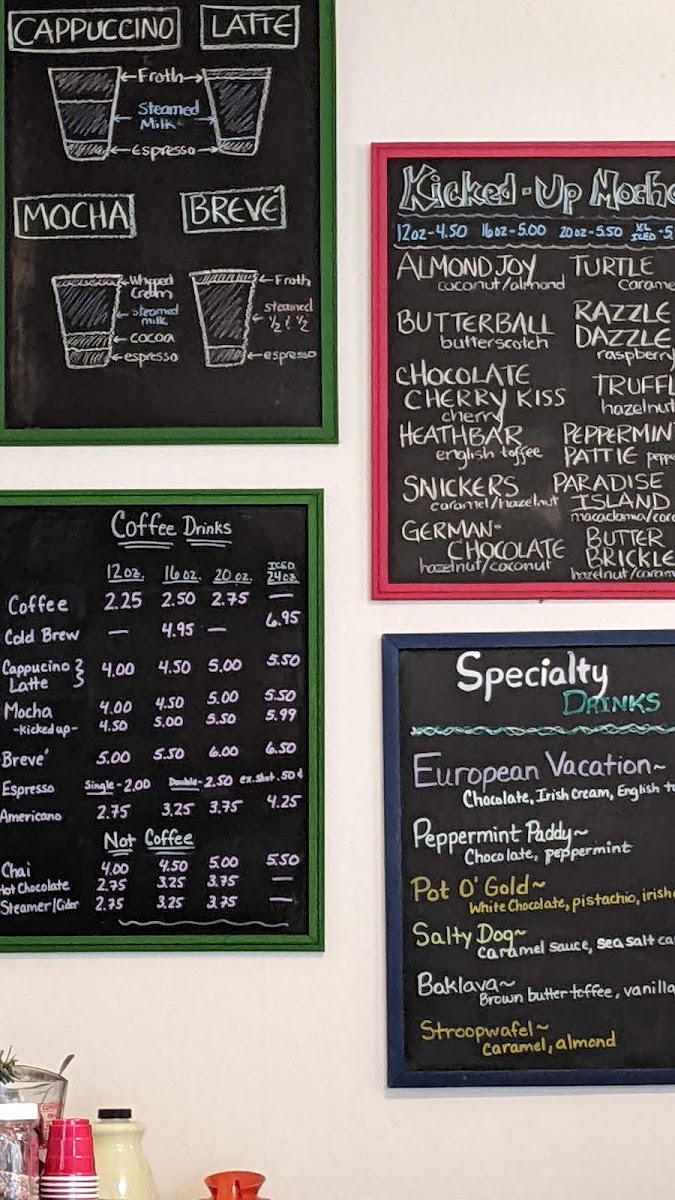 CAPPUCCINO LATTE
Froth
Steamed
Milk
Espresso
MOCHA BREVÉ
Whipped
Cream
steamed
milk
cocoa
espresso
Froth
steamed
½ & ½
espresso
Coffee Drinks
12oz. 16oz. 20oz. ICED 24oz
Coffee 2.25 2.50 2.75 —
Cold Brew — 4.95 — 6.95
Cappucino
Latte 4.00 4.50 5.00 5.50
Mocha 4.00 4.50 5.00 5.50
-kicked up- 4.50 5.00 5.50 5.99
Brevé 5.00 5.50 6.00 6.50
Espresso Single-2.00 Double-2.50 ex.shot.50¢
Americano 2.75 3.25 3.75 4.25
Not Coffee
Chai 4.00 4.50 5.00 5.50
Hot Chocolate 2.75 3.25 3.75 —
Steamer/Cider 2.75 3.25 3.75 —
Kicked-Up Mocha
12oz-4.50 16oz-5.00 20oz-5.50 XL ICED-5
ALMOND JOY
coconut/almond
BUTTERBALL
butterscotch
CHOCOLATE
CHERRY KISS
cherry
HEATHBAR
english toffee
SNICKERS
caramel/hazelnut
GERMAN-
CHOCOLATE
hazelnut/coconut
TURTLE
Carame
RAZZLE
DAZZLE
raspberry
TRUFFL
hazelnut
PEPPERMIN
PATTIE peppe
PARADISE
ISLAND
macadamia/cara
BUTTER
BRICKLE
hazelnut/caram
Specialty
DRINKS
European Vacation~
Chocolate, Irish Cream, English to
Peppermint Paddy~
Chocolate, peppermint
Pot O' Gold~
White Chocolate, pistachio, irish
Salty Dog~
caramel sauce, sea salt ca
Baklava~
Brown butter toffee, vanilla
Stroopwafel~
Caramel, almond